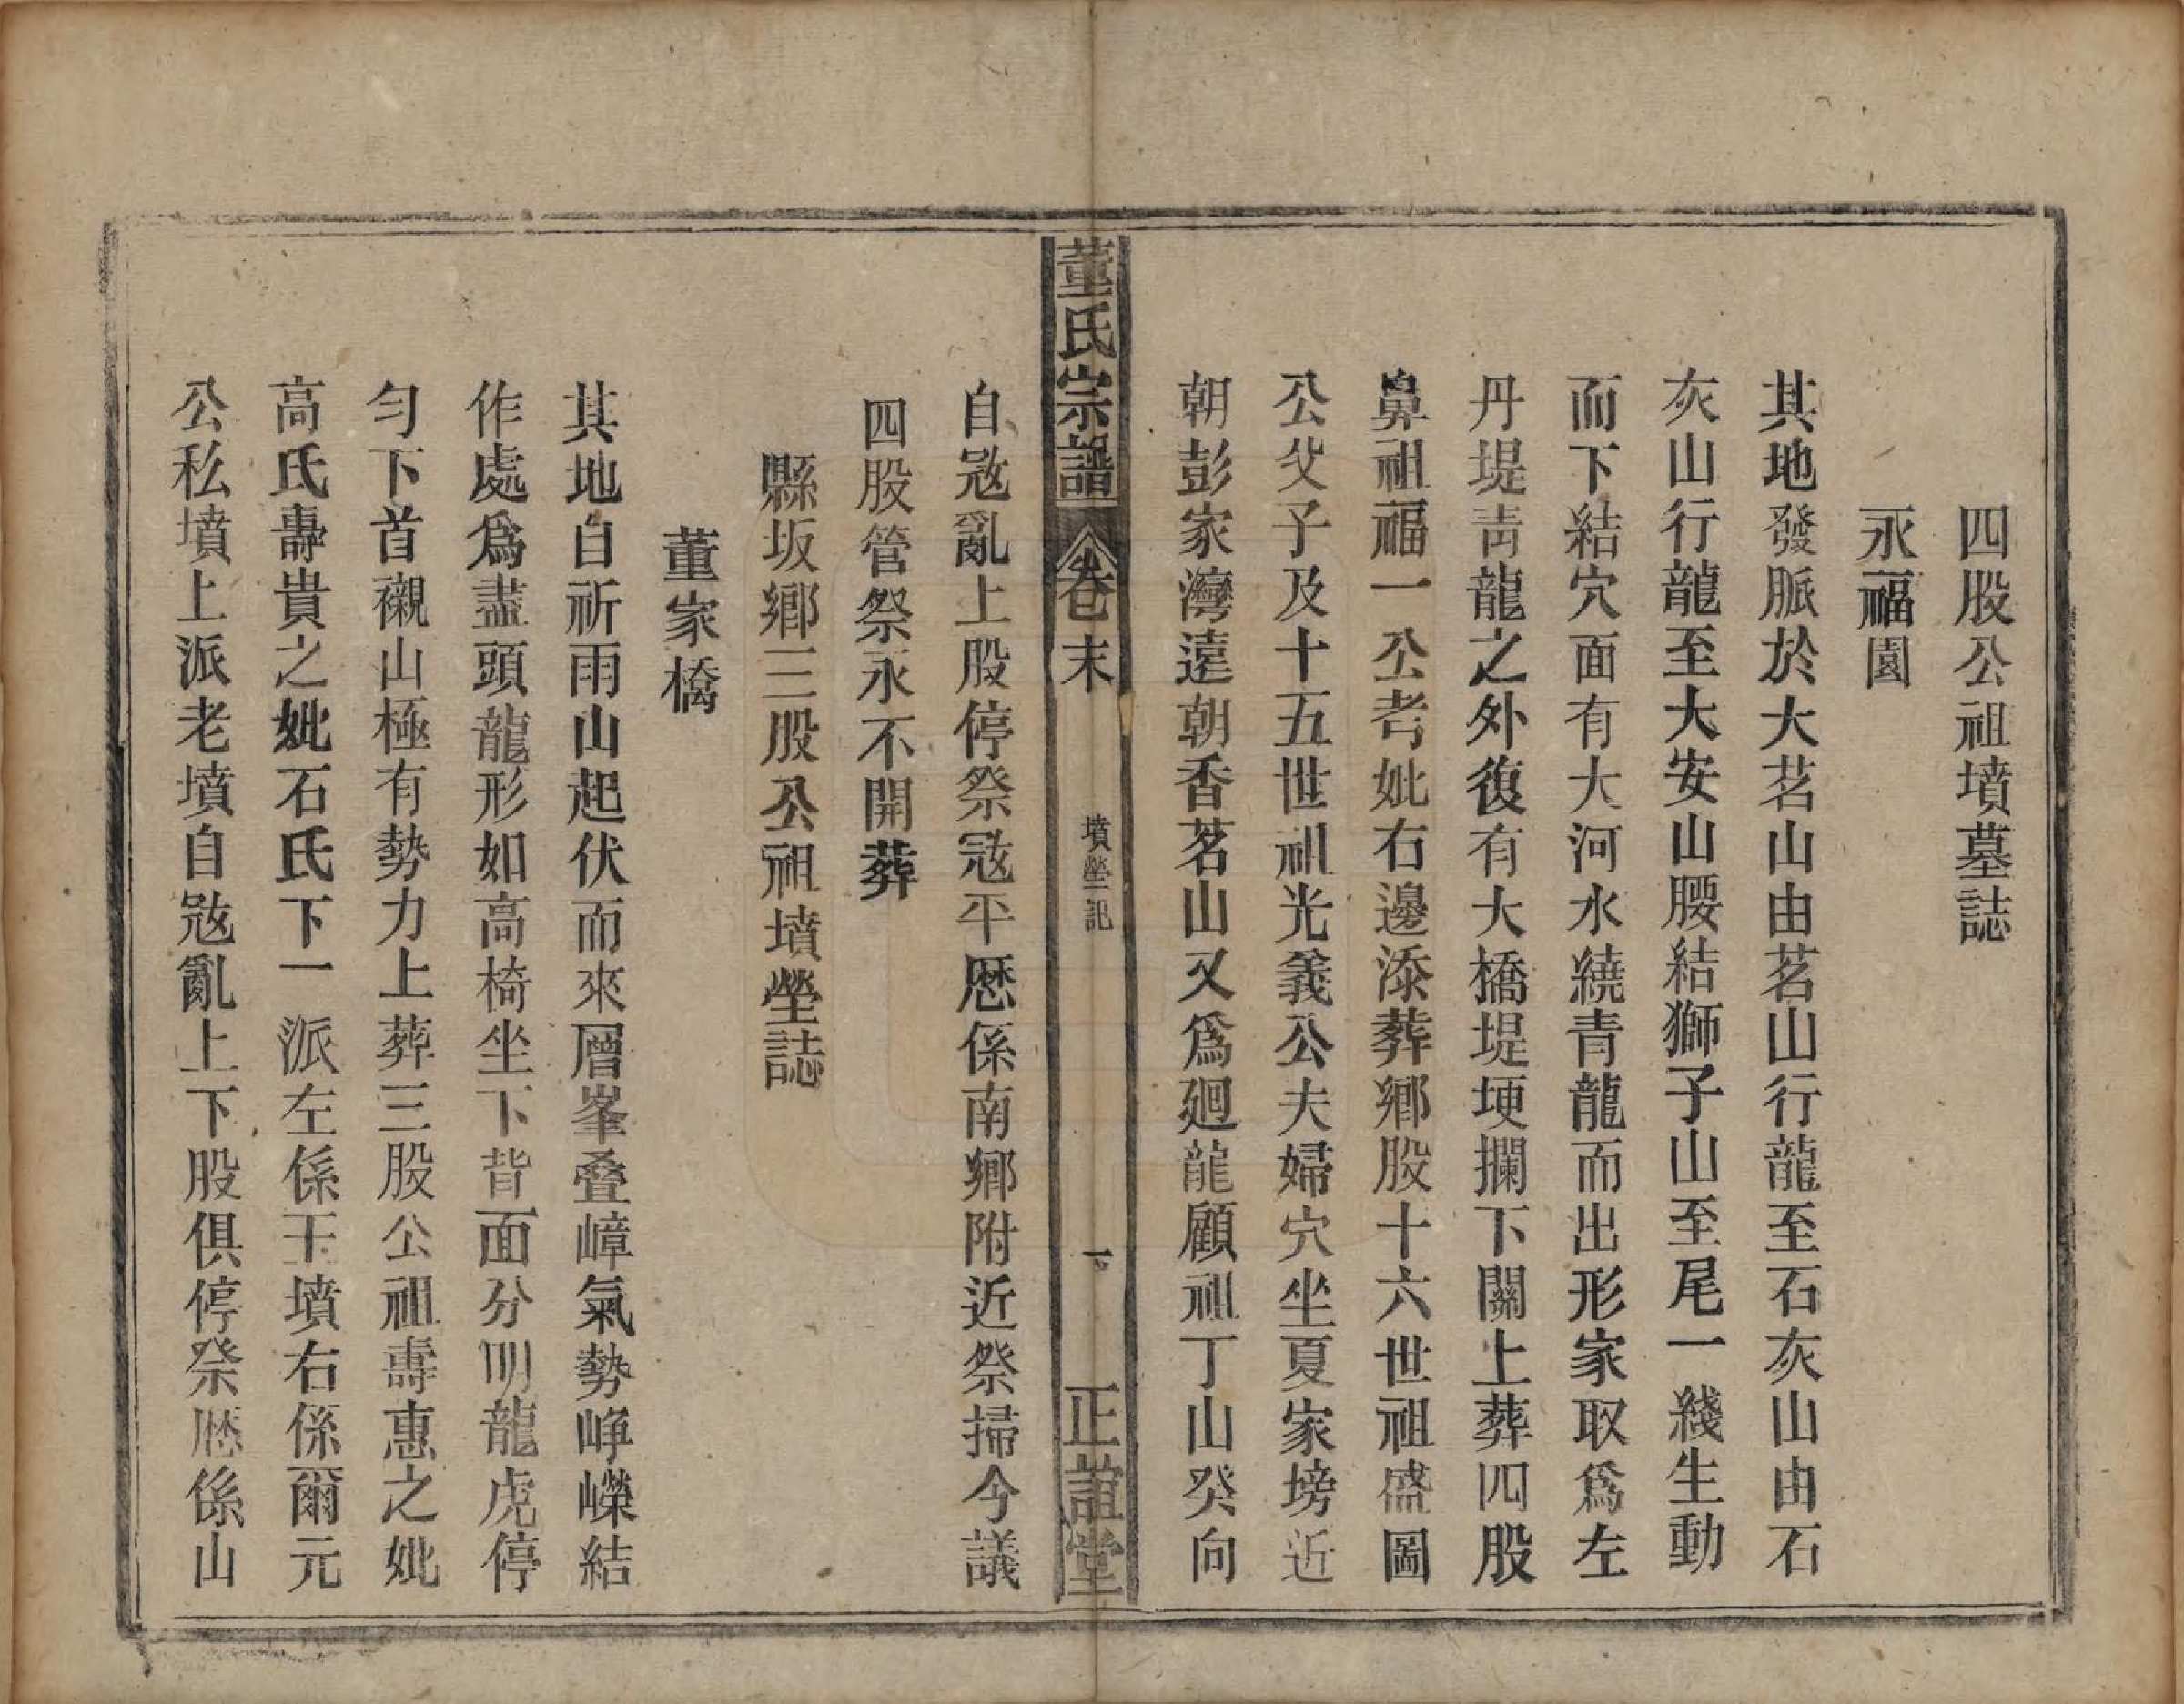 四股公祖墳墓誌
永福園
其地發脈於大茗山由茗山行龍至石灰山由石
灰山行龍至大安山腰結獅子山至尾一綫生動
而下結穴面有大河水繞青龍而出形家取爲左
丹堤青龍之外復有大橋堤埂攔下關上葬四股
鼻祖福一公考妣右邊添葬鄉股十六世祖盛圖
公父子及十五世祖光義公夫婦穴坐夏家塝近
朝彭家灣遠朝香茗山又爲廻龍顧祖丁山癸向
董氏宗譜
卷末
墳塋記
下
正誼堂
自宼亂上股停祭宼平厯係南鄉附近祭掃今議
四股管祭永不開葬
縣坂鄉三股公祖墳塋誌
董家橋
其地自祈雨山起伏而來層峯叠嶂氣勢峥嶸結
作處爲盡頭龍形如高椅坐下背面分明龍虎停
勻下首襯山極有勢力上葬三股公祖壽惠之妣
高氏壽貴之妣石氏下一派左係王墳右係爾元
公私墳上派老墳自宼亂上下股俱停祭厯係山